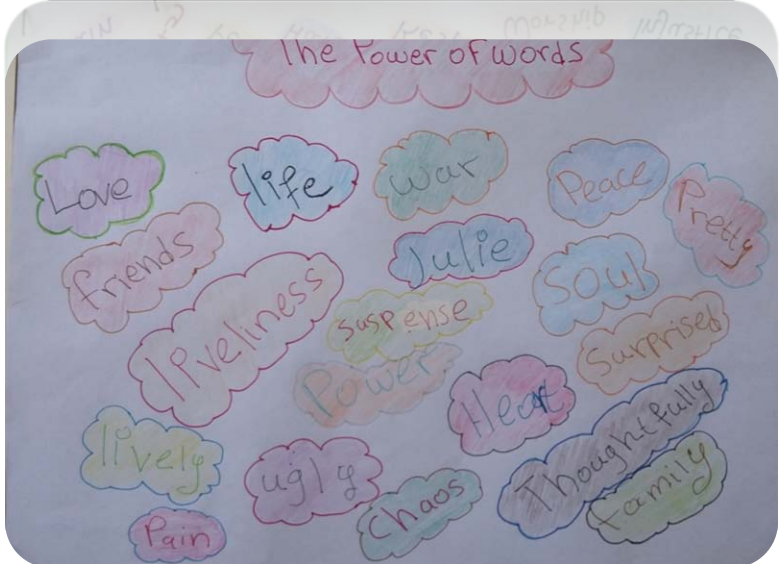 The Power of words
Love
life
war
Peace
Pretty
friends
Julie
Soul
liveliness
suspense
Surprised
Power
Heart
Thoughtfully
lively
ugly
chaos
family
Pain